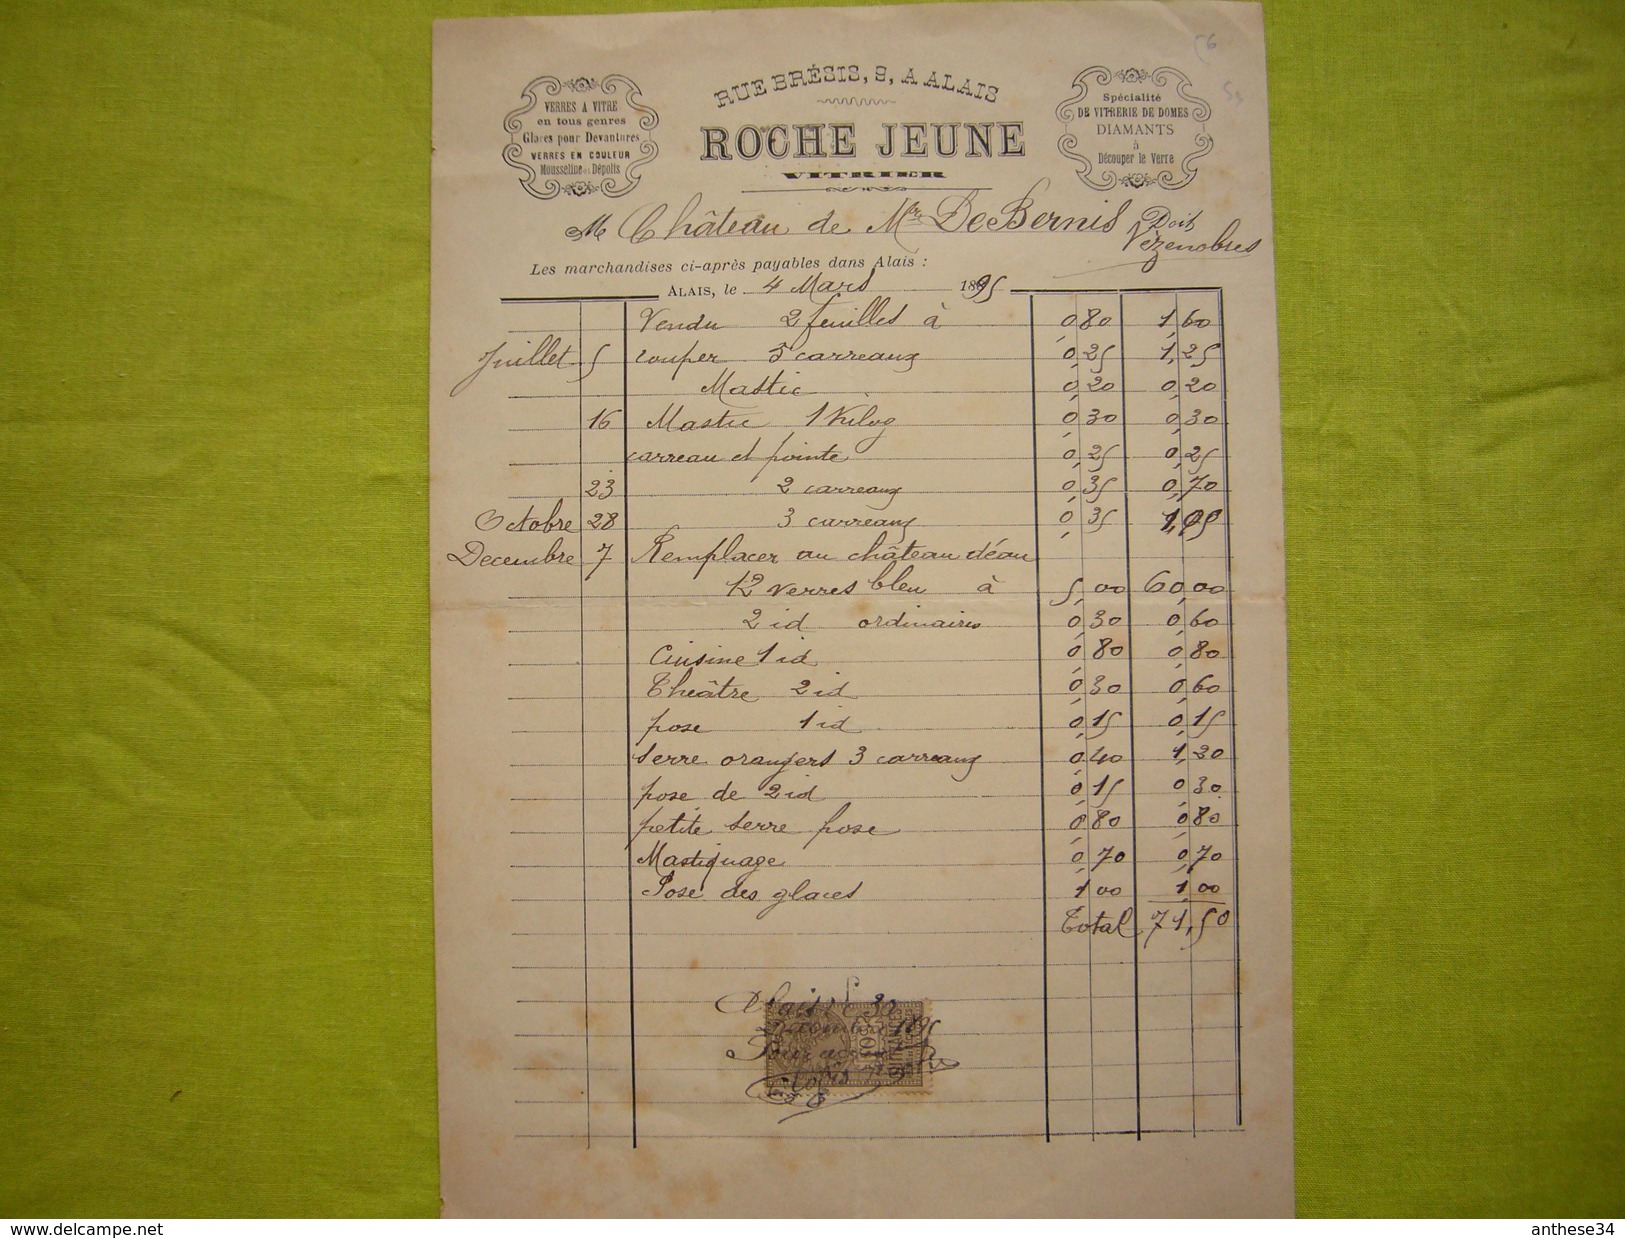 RUE BRÉSIS, 9, A ALAIS
ROCHE JEUNE
VITRIER
VERRES A VITRE
en tous genres
Glaces pour Devantures
VERRES EN COULEUR
Mousseline et Dépolis
Spécialité
DE VITRERIE DE DOMES
DIAMANTS
à
Découper le Verre
M Château de Mr De Bernis Doit
Vézenobres
Les marchandises ci-après payables dans Alais :
ALAIS, le 4 Mars 1895
Vendu 2 feuilles à 0,80 1,60
Juillet 5 couper 5 carreaux 0,25 1,25
Mastic 0,20 0,20
16 Mastic 1 Kilog 0,30 0,30
carreau et pointe 0,25 0,25
23 2 carreaux 0,35 0,70
Octobre 28 3 carreaux 0,35 1,05
Decembre 7 Remplacer au château d'éau
12 verres bleu à 5,00 60,00
2 id ordinaires 0,30 0,60
Cuisine 1 id 0,80 0,80
Theâtre 2 id 0,30 0,60
pose 1 id 0,15 0,15
Serre orangers 3 carreaux 0,40 1,20
pose de 2 id 0,15 0,30
petite serre pose 0,80 0,80
Mastiquage 0,70 0,70
Pose des glaces 1,00 1,00
Total 71,50
Alais le 30
1895
Pour
QUITTANCES
delcampe.net
anthese34